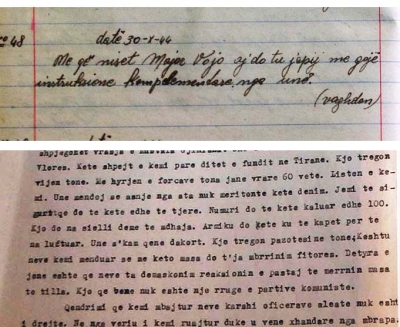 nº 48
datë 30-X-44
Me që niset Major Vojo aj do tu japij me gojë
instruksione komplemendare nga unë.
(vazhdon)
shpjegohet vrasja e
Vlores. Kete shpejt e kemi pare ditet e fundit ne Tirane. Kjo tregon
vijen tone. Me hyrjen e forcave tona jane vrare 60 vete. Listen e ke-
mi. Une mendoj se asnje nga ata nuk meritonte kete denim. Jemi te si-
gurtqe do te kete edhe te tjere. Numuri do te kete kaluar edhe 100.
Kjo do na sielli deme te medhaja. Armiku do kete ku te kapet per te
na luftuar. Une s'kam qene dakort. Kjo tregon pazotesine tone;Keshtu
neve kemi menduar se me keto masa do t'ja mbrrinim fitores. Detyra e
jone eshte qe neve ta demaskonim reaksionin e pastaj te merrnim masa
te tilla. Kjo qe beme nuk eshte nje rruge e partive komuniste.
Qendrimi qe kemi mbajtur neve karshi oficerave aleate nuk esht
i drejte. Ne nga veriu i kemi ruajtur duke u vene xhandare nga mbrapa.